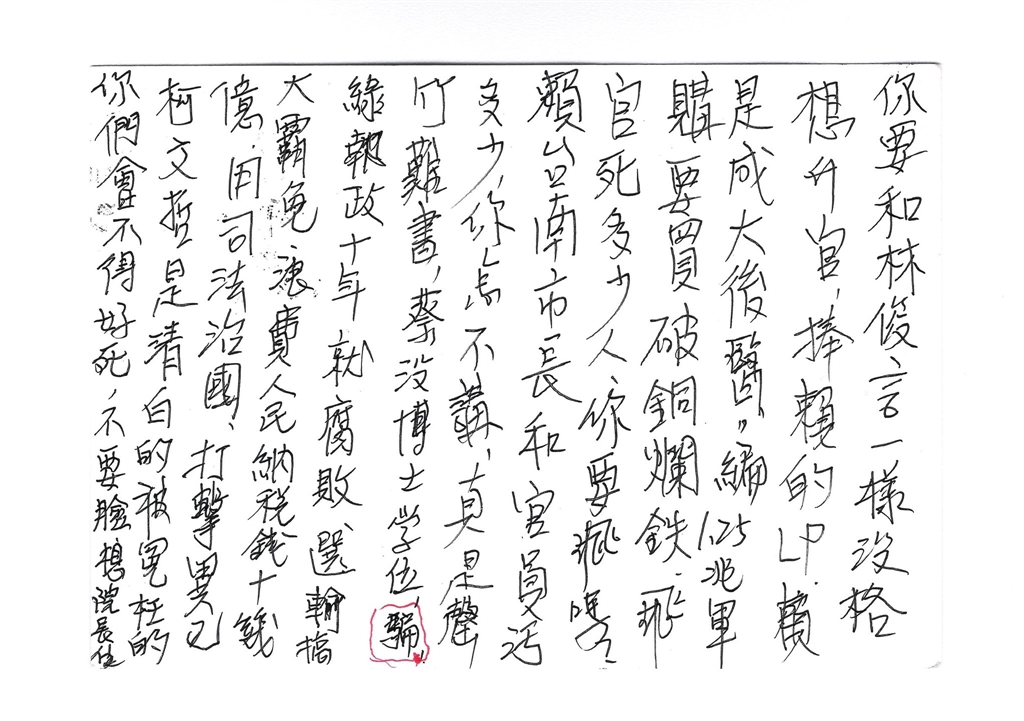 你要和林俊言一樣沒格
想升官、捧賴的LP.賴
是成大後醫,,編1.25兆軍
購要買破銅爛鉄.飛
官死多少人、你要飛嗎?
賴台南市長和官員污
多少,你怎不講,真是罄
竹難書,蔡沒博士学位,騙!
綠執政十年就腐敗、選輸搞
大罷免.浪費人民納稅錢十幾
億.用司法治國、打擊異己
柯文哲是清白的被冤枉的
你們會不得好死、不要臉想院長位